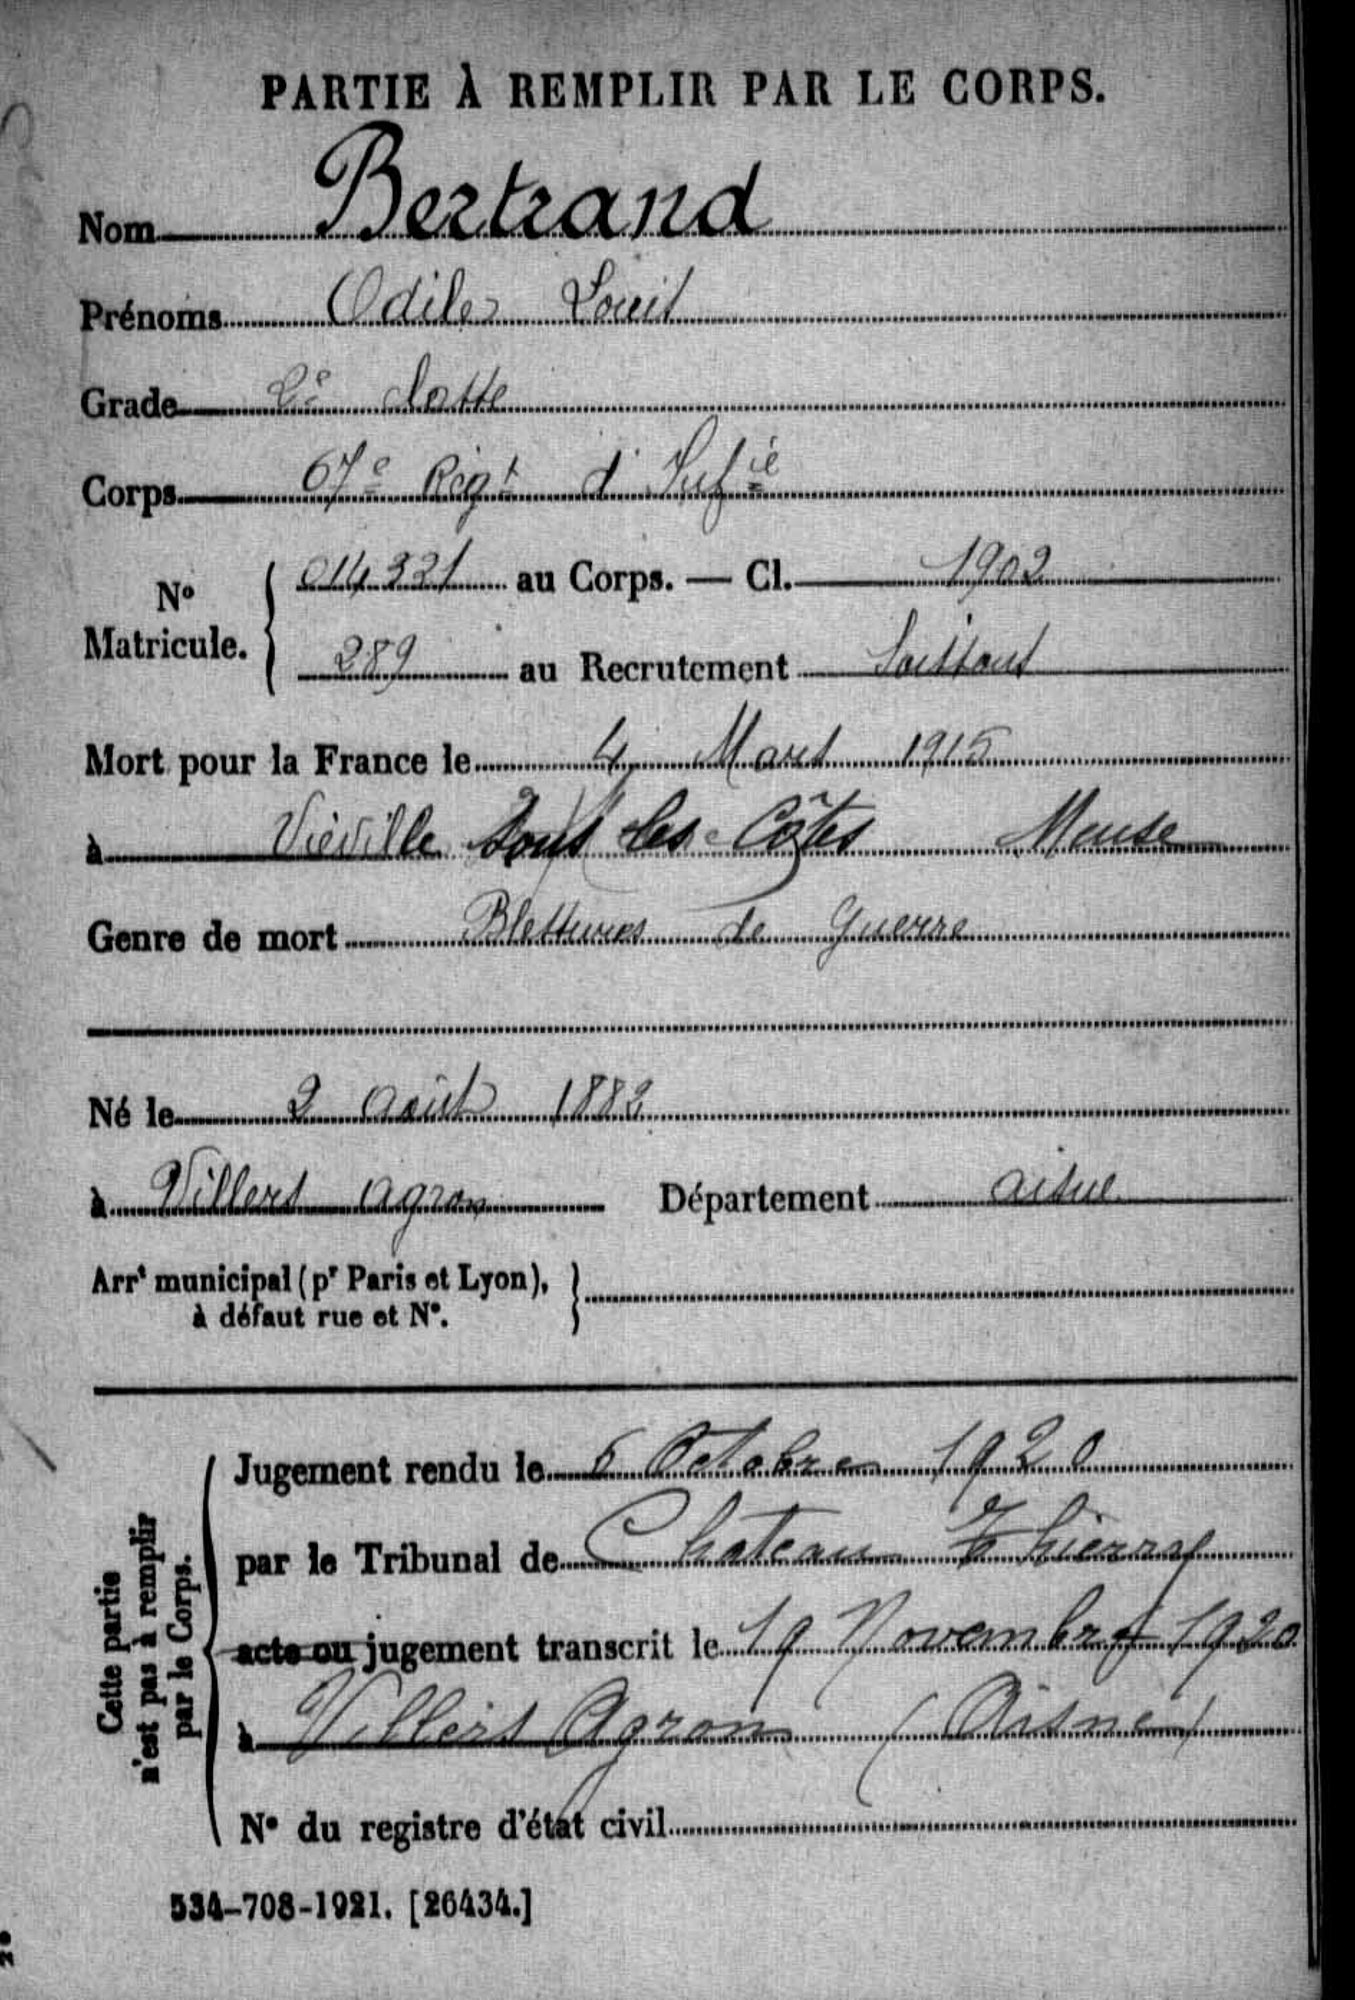 PARTIE À REMPLIR PAR LE CORPS.
Nom Bertrand
Prénoms Odile Louis
Grade 2e classe
Corps 67e Régt d'Infie
No Matricule. 014321 au Corps. — Cl. 1902
289 au Recrutement Soissons
Mort pour la France le 4 Mars 1915
à Viéville sous les Côtes Meuse
Genre de mort Blessures de Guerre
Né le 2 août 1882
à Villers Agron Département Aisne
Arrt municipal (pr Paris et Lyon),
à défaut rue et No.
Cette partie
n'est pas à remplir
par le Corps.
Jugement rendu le 6 Octobre 1920
par le Tribunal de Chateau Thierry
acte ou jugement transcrit le 19 Novembre 1920
à Villers Agron (Aisne)
No du registre d'état civil
534-708-1921. [26434.]